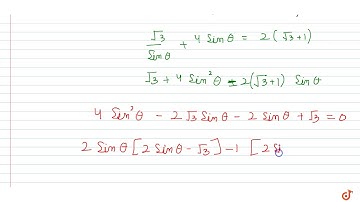 √3/Sinθ + 4 Sinθ = 2(√3+1)
√3 + 4 Sin²θ = 2(√3+1) Sinθ
4 Sin²θ - 2√3 Sinθ - 2 Sinθ + √3 = 0
2 Sinθ [2 Sinθ - √3] - 1 [2 Si